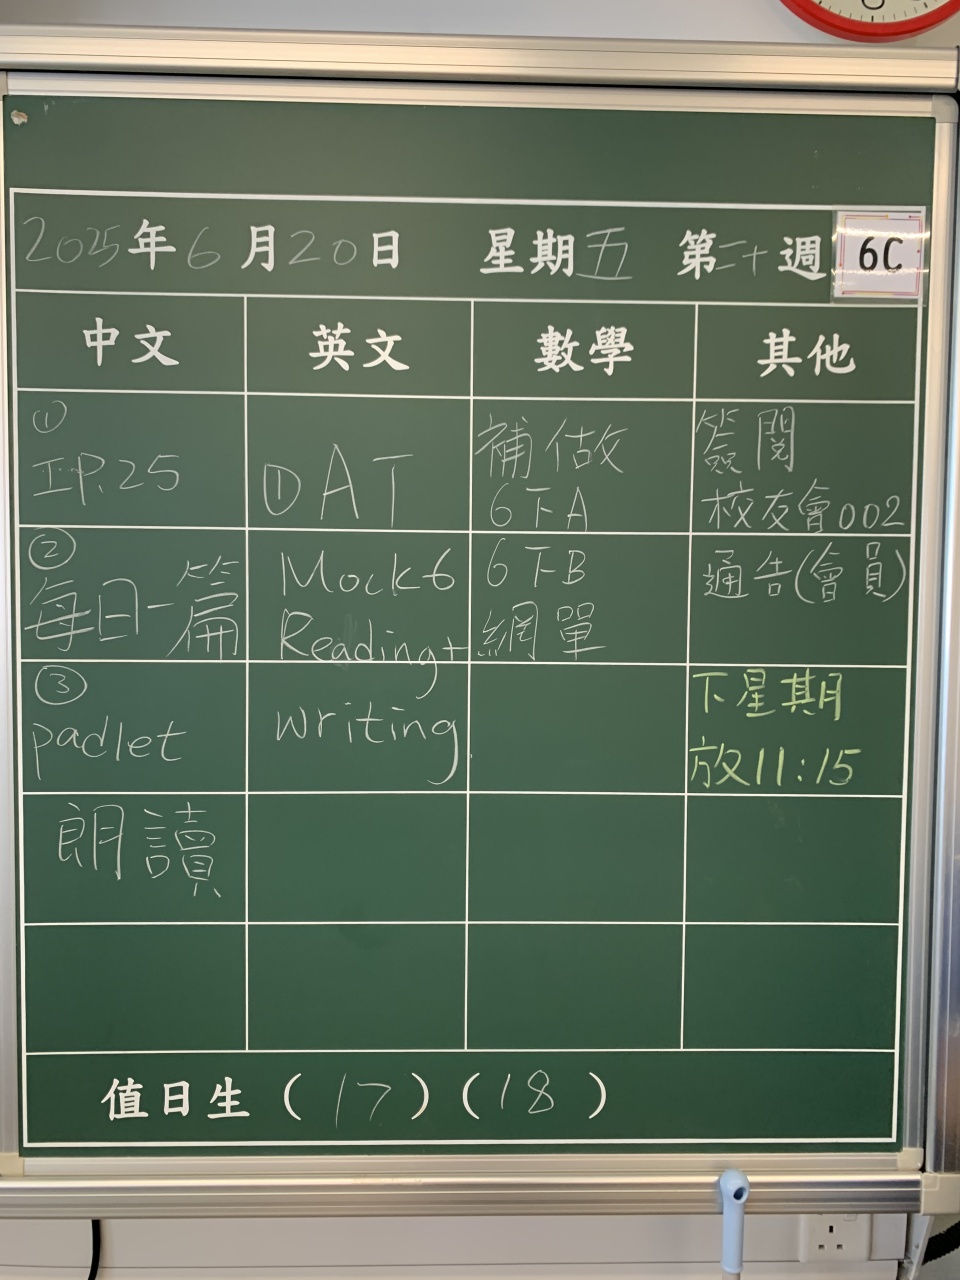 2025年6月20日 星期五 第二十週 6C
中文 英文 數學 其他
①
I.P.25
②
每日一篇
③
padlet
朗讀
① DAT
Mock 6
Reading+
writing
補做
6下A
6下B
網單
簽閱
校友會002
通告(會員)
下星期
放11:15
值日生(17)(18)